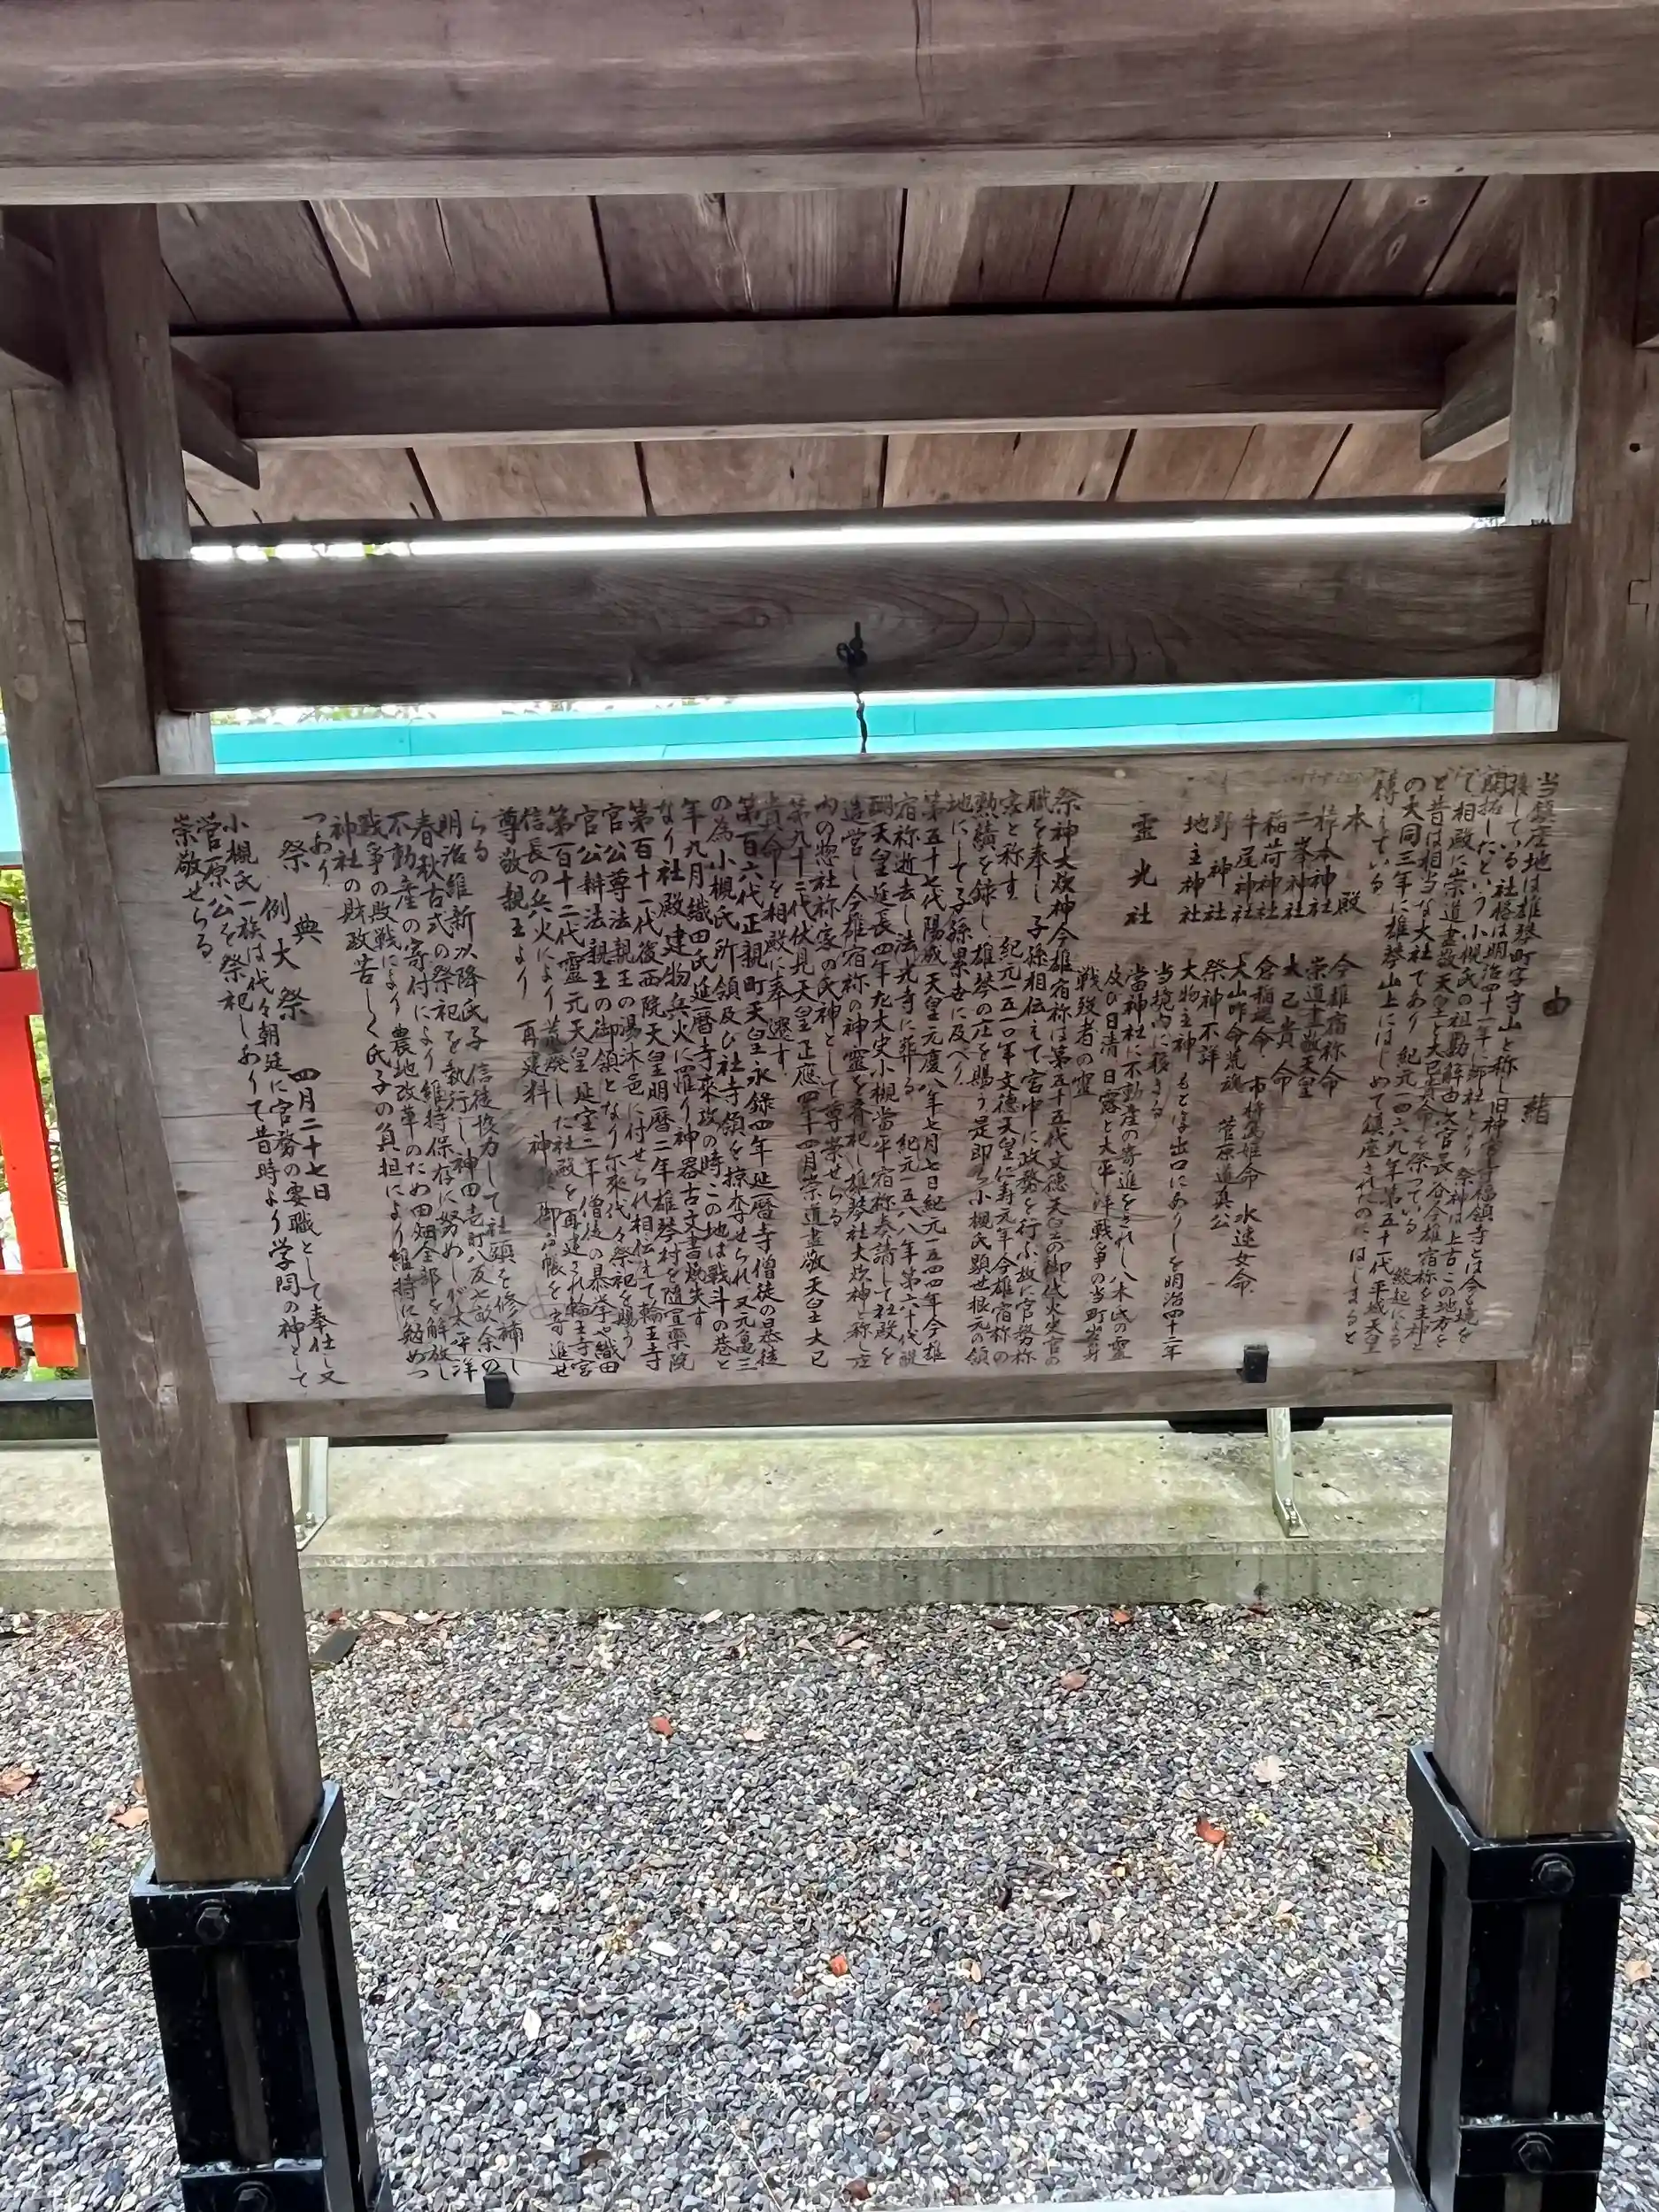 由緒
当鎮座地は雄琴町字守山と称し旧神宮寺福領寺とは今境を
接している 社格は明治四十一年に郷社となり 祭神は上古この地方を
開拓したという小槻氏の祖勘解由次官長谷今雄宿祢を主神と
て相殿に崇道盡敬天皇と大己貴命を祭っている 縁起による
と昔は相当な大社であり 紀元一四六九年第五十一代平城天皇
の大同三年に雄琴山上にはじめて鎮座されたのにはじまると
傳えている
本殿 今雄宿祢命
崇道盡敬天皇
大己貴命
二峯神社
稲荷神社 倉稲魂命 市杵嶋姫命 水速女命
牛尾神社 大山咋命荒魂 菅原道真公
野神社 祭神不詳
地主神社 大物主神 もとは出口にありしを明治四十二年
当境内に移さる
霊光社 當神社に不動産の寄進をされし八木氏の霊
及び日清 日露と大平洋戦争の当町出身
戦歿者の霊
祭神大炊神今雄宿祢は第五十五代文徳天皇の御代火史官の
職を奉し子孫相伝えて宮中に政務を行ふ故に官務祢
家と称す 紀元一五一〇年文徳天皇仁寿元年今雄宿祢の
勲績を録し 雄琴の庄を賜う是即ち小槻氏顕世根元の領
地にして子孫累世に及べり
第五十七代陽成天皇元慶八年七月七日紀元一五四四年今雄
宿祢逝去し法光寺に葬る 紀元一五八八年第六十代醍
醐天皇延長四年左大史小槻当平宿祢奏請して社殿を
造営し今雄宿祢の神霊を斉祀し雄琴社大炊神と称し庄
内の惣社祢家の氏神として尊崇せらる
第九十二代伏見天皇正應四年四月崇道盡敬天皇大己
貴命を相殿に奉遷す
第百六代正親町天皇永録四年延暦寺僧徒の暴徒
の為小槻氏所領及び社寺領を掠奪せられ又元亀三
年九月織田氏延暦寺来攻の時この地は戦斗の巷と
なり社殿建物兵火に罹り神器古文書焼失す
第百十一代後西院天皇明暦二年雄琴村を隨宜楽院
宮公尊法親王の湯沐邑に付せられ相伝えて輪王寺
宮公辯法親王の御領となり尓来代々祭祀を賜う
第百十二代霊元天皇延宝二年僧徒の暴挙や織田
信長の兵火により荒廃した社殿を再建され輪王寺宮
尊敬親王より 再建料 神 御戸帳を寄進せ
らる
明治維新以降氏子信徒協力して社頭を修補し
春秋古式の祭祀を執行し神田壱町八反七畝余の
不動産の寄付により維持保存に努めしが太平洋
戦争の敗戦により農地改革のため田畑全部を解放し
神社の財政苦しく氏子の負担により維持に勉めつ
つあり
祭典
例大祭 四月二十七日
小槻氏一族は代々朝廷に官務の要職として奉仕し又
菅原公を祭祀しありて昔時より学問の神として
崇敬せらる